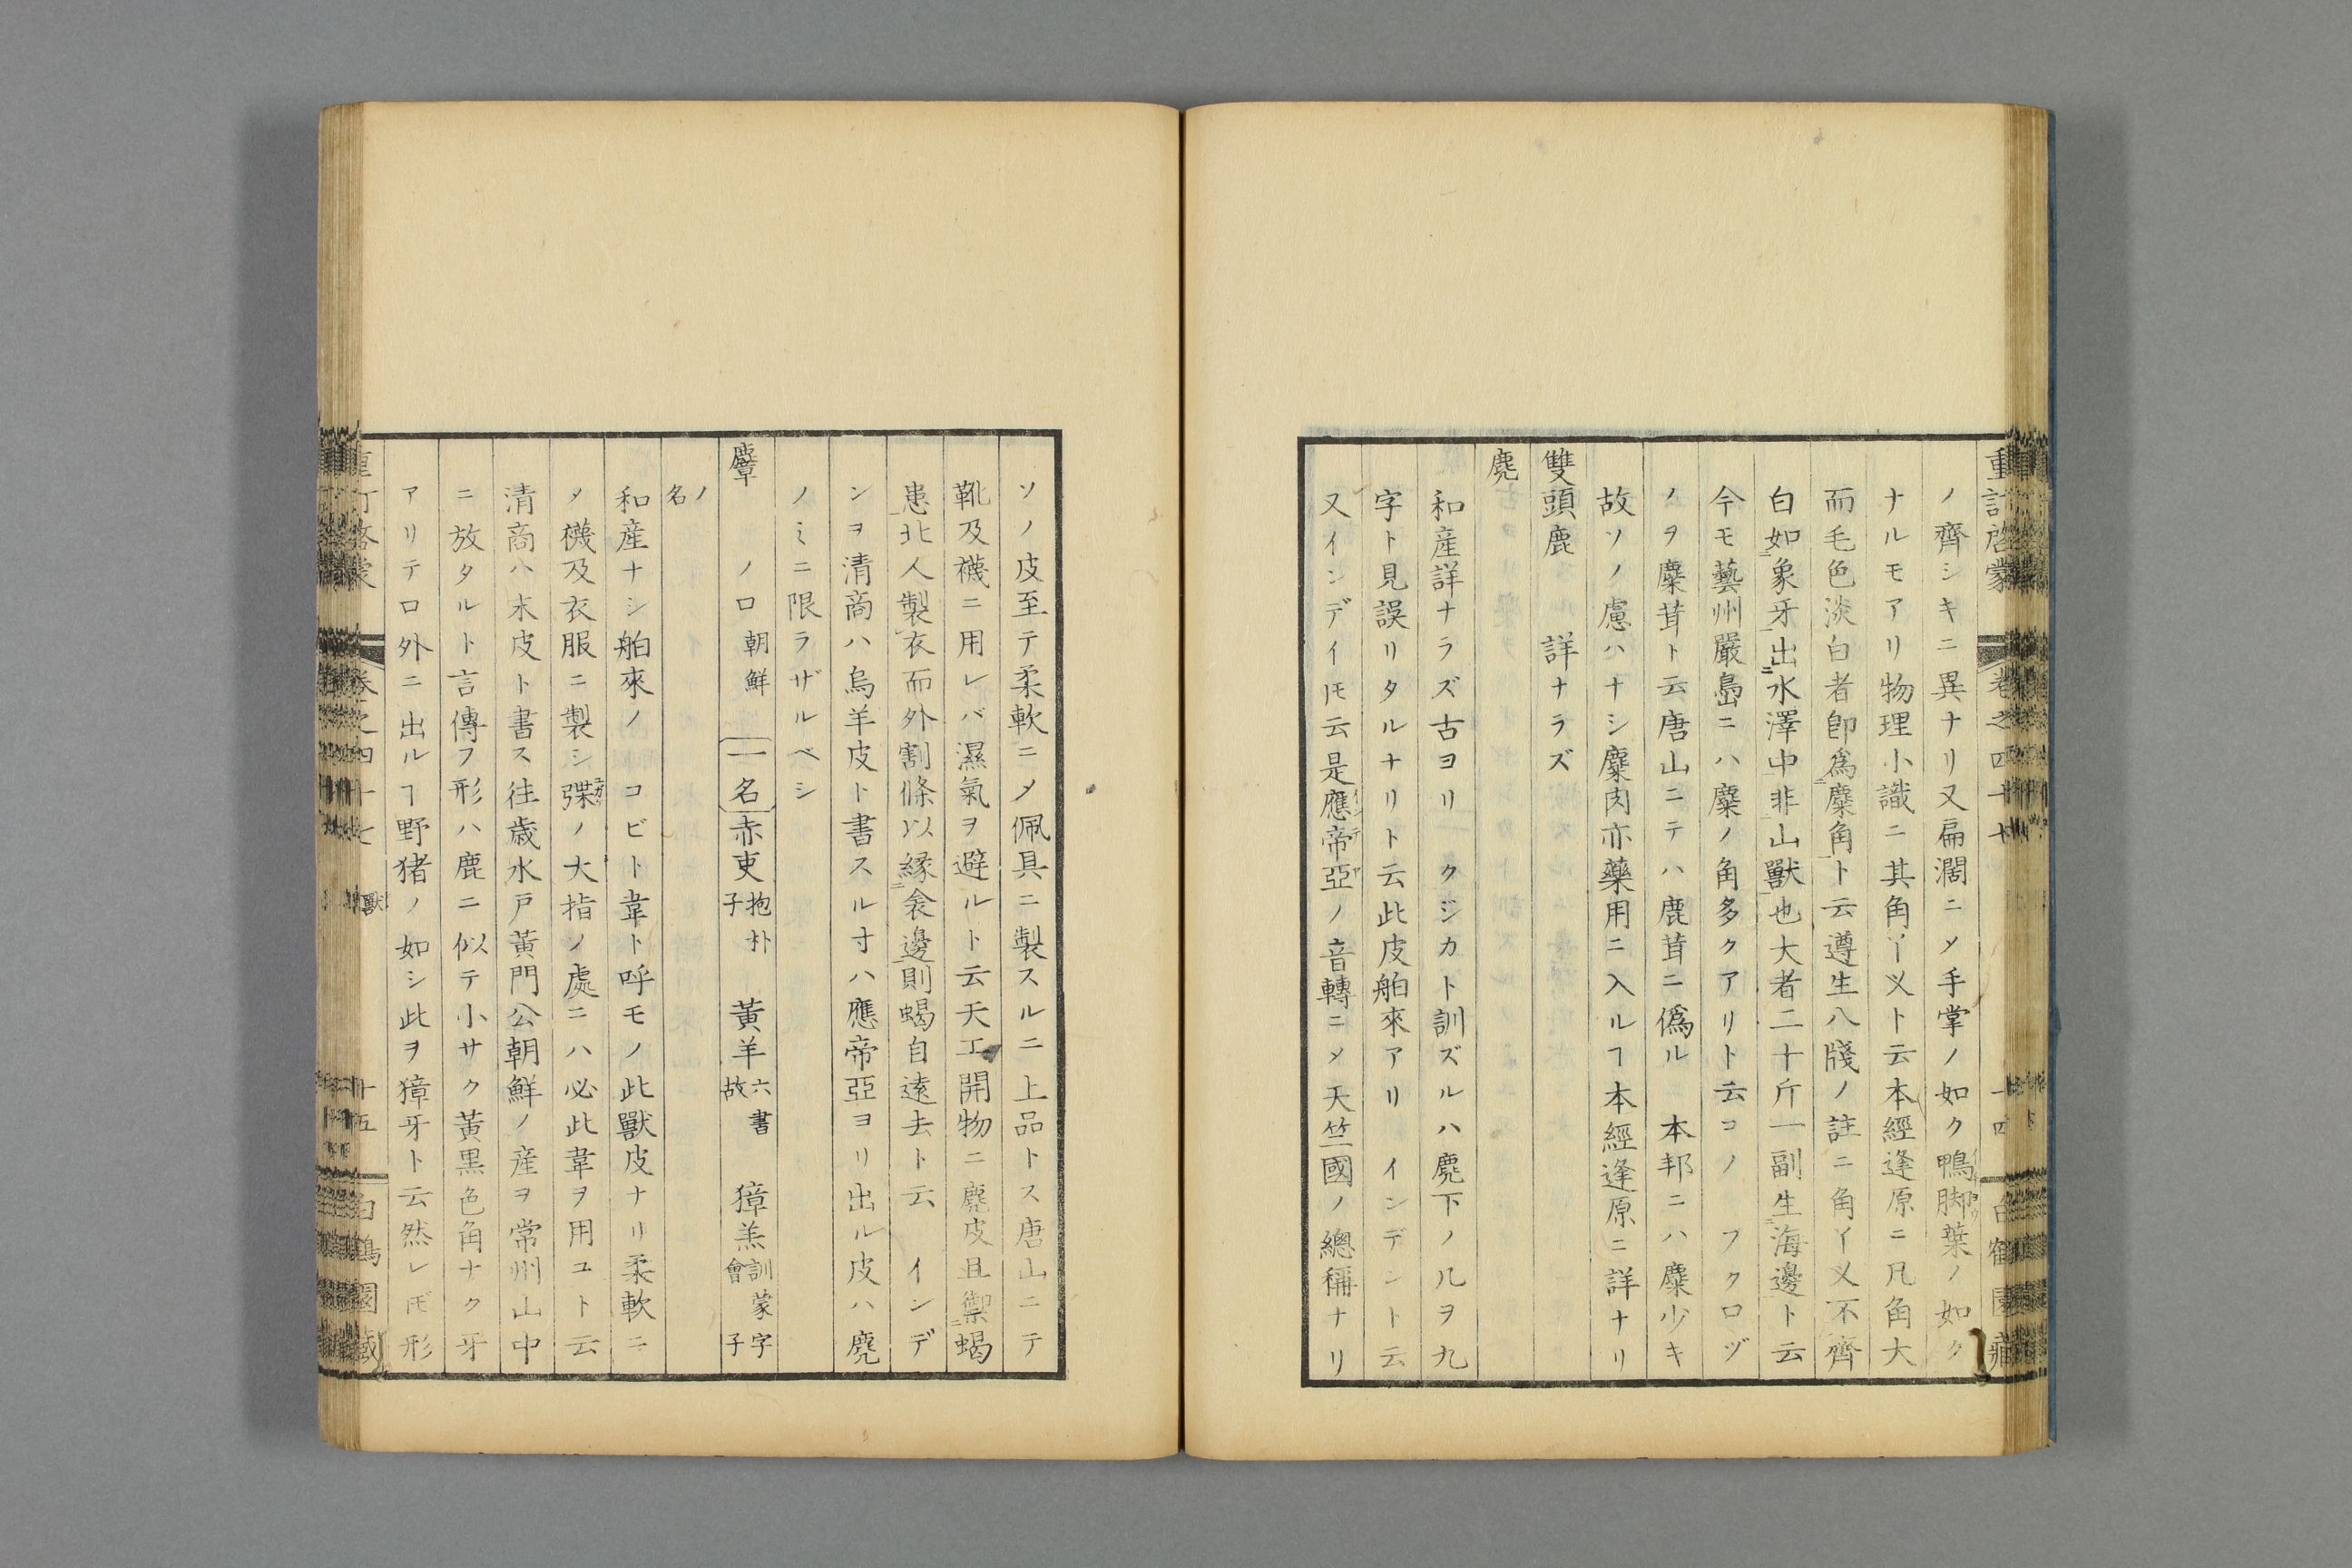 重訂啓蒙 卷之四十七 十四 白鶴園藏
ノ齊シキニ異ナリ又扁濶ニメ手掌ノ如ク鴨脚葉ノ如ク
ナルモアリ物理小識ニ其角丫义ト云本經逢原ニ凡角大
而毛色淡白者卽爲麋角ト云遵生八牋ノ註ニ角丫义不齊
白如象牙出水澤中非山獸也大者二十斤一副生海邊ト云
今モ藝州嚴島ニハ麋ノ角多クアリト云コノ フクロヅ
ノヲ麋茸ト云唐山ニテハ鹿茸ニ僞ル 本邦ニハ麋少キ
故ソノ慮ハナシ麋肉亦藥用ニ入ルヿ本經逢原ニ詳ナリ
雙頭鹿 詳ナラズ
麂
和産詳ナラズ古ヨリ クジカト訓ズルハ麂下ノ几ヲ九
字ト見誤リタルナリト云此皮舶來アリ インデント云
又インデイトモ云是應帝亞ノ音轉ニメ天竺國ノ總稱ナリ
ソノ皮至テ柔軟ニメ佩具ニ製スルニ上品トス唐山ニテ
靴及襪ニ用レバ濕氣ヲ避ルト云天工開物ニ麂皮且禦蝎
患北人製衣而外割條以縁衾邊則蝎自遠去ト云 インデ
ンヲ清商ハ烏羊皮ト書スル寸ハ應帝亞ヨリ出ル皮ハ麂
ノミニ限ラザルベシ
麞 ノロ朝鮮 一名 赤吏抱朴子 黃羊六書故 獐羔訓蒙字會 子
ノ名
和産ナシ舶來ノ コビト韋ト呼モノ此獸皮ナリ柔軟ニ
メ襪及衣服ニ製シ弽ノ大指ノ處ニハ必此韋ヲ用ユト云
清商ハ末皮ト書ス往歳水戸黃門公朝鮮ノ産ヲ常州山中
ニ放タルト言傳フ形ハ鹿ニ似テ小サク黃黒色角ナク牙
アリテロ外ニ出ルヿ野猪ノ如シ此ヲ獐牙ト云然レドモ形
重訂啓蒙 卷之四十七 獸 十五 白鶴園藏